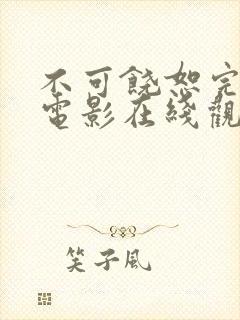 不可饶恕完
電影在綫觀
笑子風